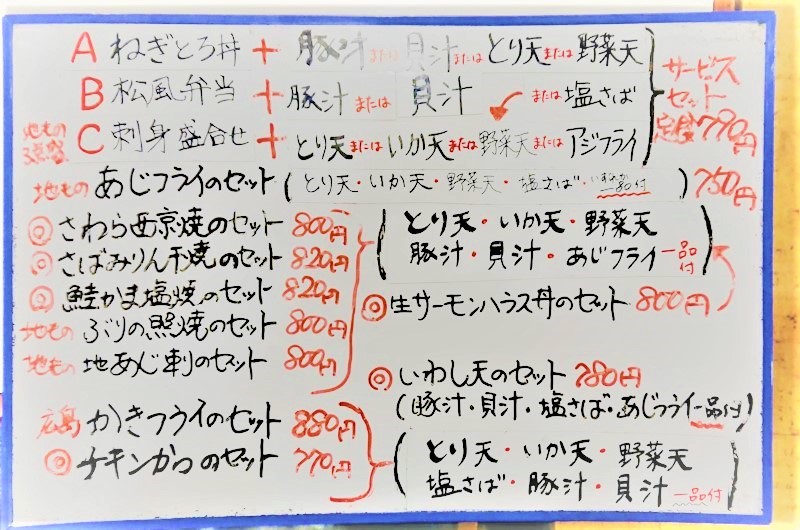 A ねぎとろ丼 + 豚汁 または 貝汁 または とり天 または 野菜天
B 松風弁当 + 豚汁 または 貝汁 または 塩さば
地もの
C 刺身盛合せ + とり天 または いか天 または 野菜天 または アジフライ
サービス
セット
定食 790円
地もの あじフライのセット (とり天・いか天・野菜天・塩さば・一品付) 750円
◎ さわら西京焼のセット 800円
◎ さばみりん干焼のセット 820円
◎ 鮭かま塩焼のセット 820円
地もの ぶりの照焼のセット 800円
地もの 地あじ刺のセット 800円
(とり天・いか天・野菜天
豚汁・貝汁・あじフライ 一品付)
◎ 生サーモンハラス丼のセット 800円
◎ いわし天のセット 780円
(豚汁・貝汁・塩さば・あじフライ一品付)
広島 かきフライのセット 880円
◎ チキンかつのセット 770円
(とり天・いか天・野菜天
塩さば・豚汁・貝汁 一品付)